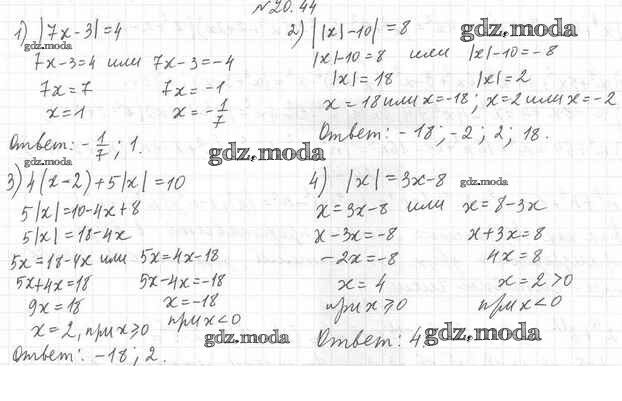 №20.44
1) |7x-3|=4
gdz.moda
7x-3=4 или 7x-3=-4
7x=7 7x=-1
x=1 x=-1/7
Ответ: -1/7; 1.
gdz.moda
2) ||x|-10|=8
gdz.moda
|x|-10=8 или |x|-10=-8
|x|=18 |x|=2
x=18 или x=-18; x=2 или x=-2
Ответ: -18; -2; 2; 18.
gdz.moda
3) 4(x-2)+5|x|=10
5|x|=10-4x+8
5|x|=18-4x
5x=18-4x или 5x=4x-18
5x+4x=18 5x-4x=-18
9x=18 x=-18
x=2, при x⩾0 при x<0
Ответ: -18; 2.
gdz.moda
4) |x|=3x-8
gdz.moda
x=3x-8 или x=8-3x
x-3x=-8 x+3x=8
-2x=-8 4x=8
x=4 x=2>0
при x⩾0 при x<0
Ответ: 4.
gdz.moda